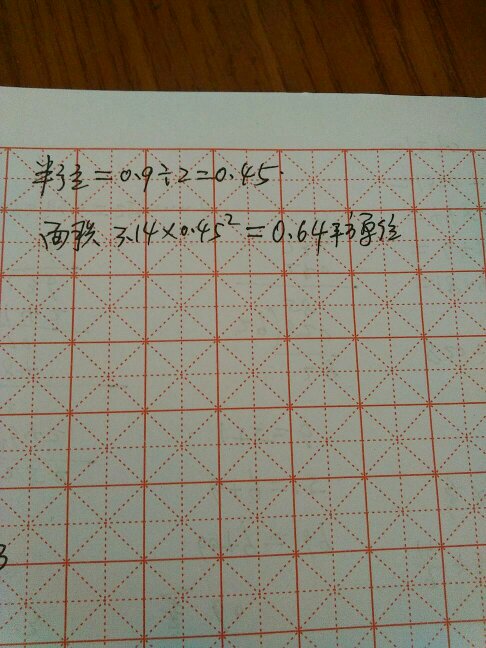 半径=0.9÷2=0.45
面积 3.14×0.45²=0.64平方
3